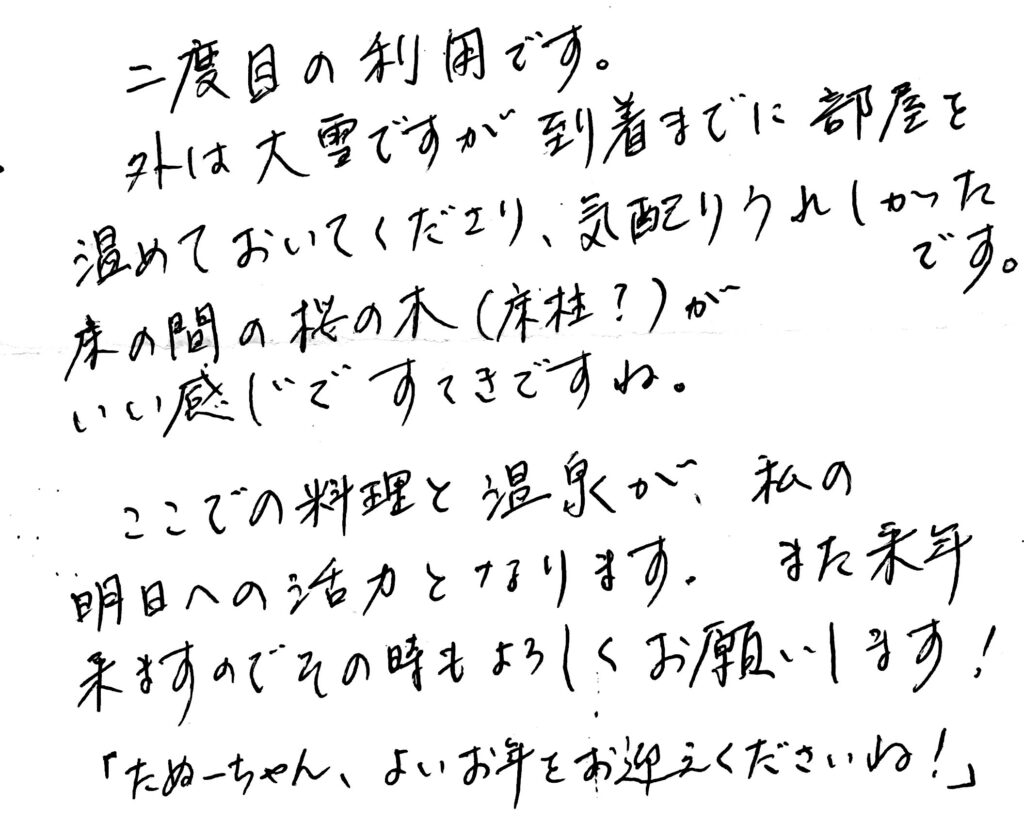 二度目の利用です。
外は大雪ですが到着までに部屋を
温めておいてくださり、気配りうれしかった
です。
床の間の桜の木(床柱？)が
いい感じですてきですね。
ここでの料理と温泉が、私の
明日への活力となります。また来年
来ますのでその時もよろしくお願いします！
「たぬーちゃん、よいお年をお迎えくださいね！」